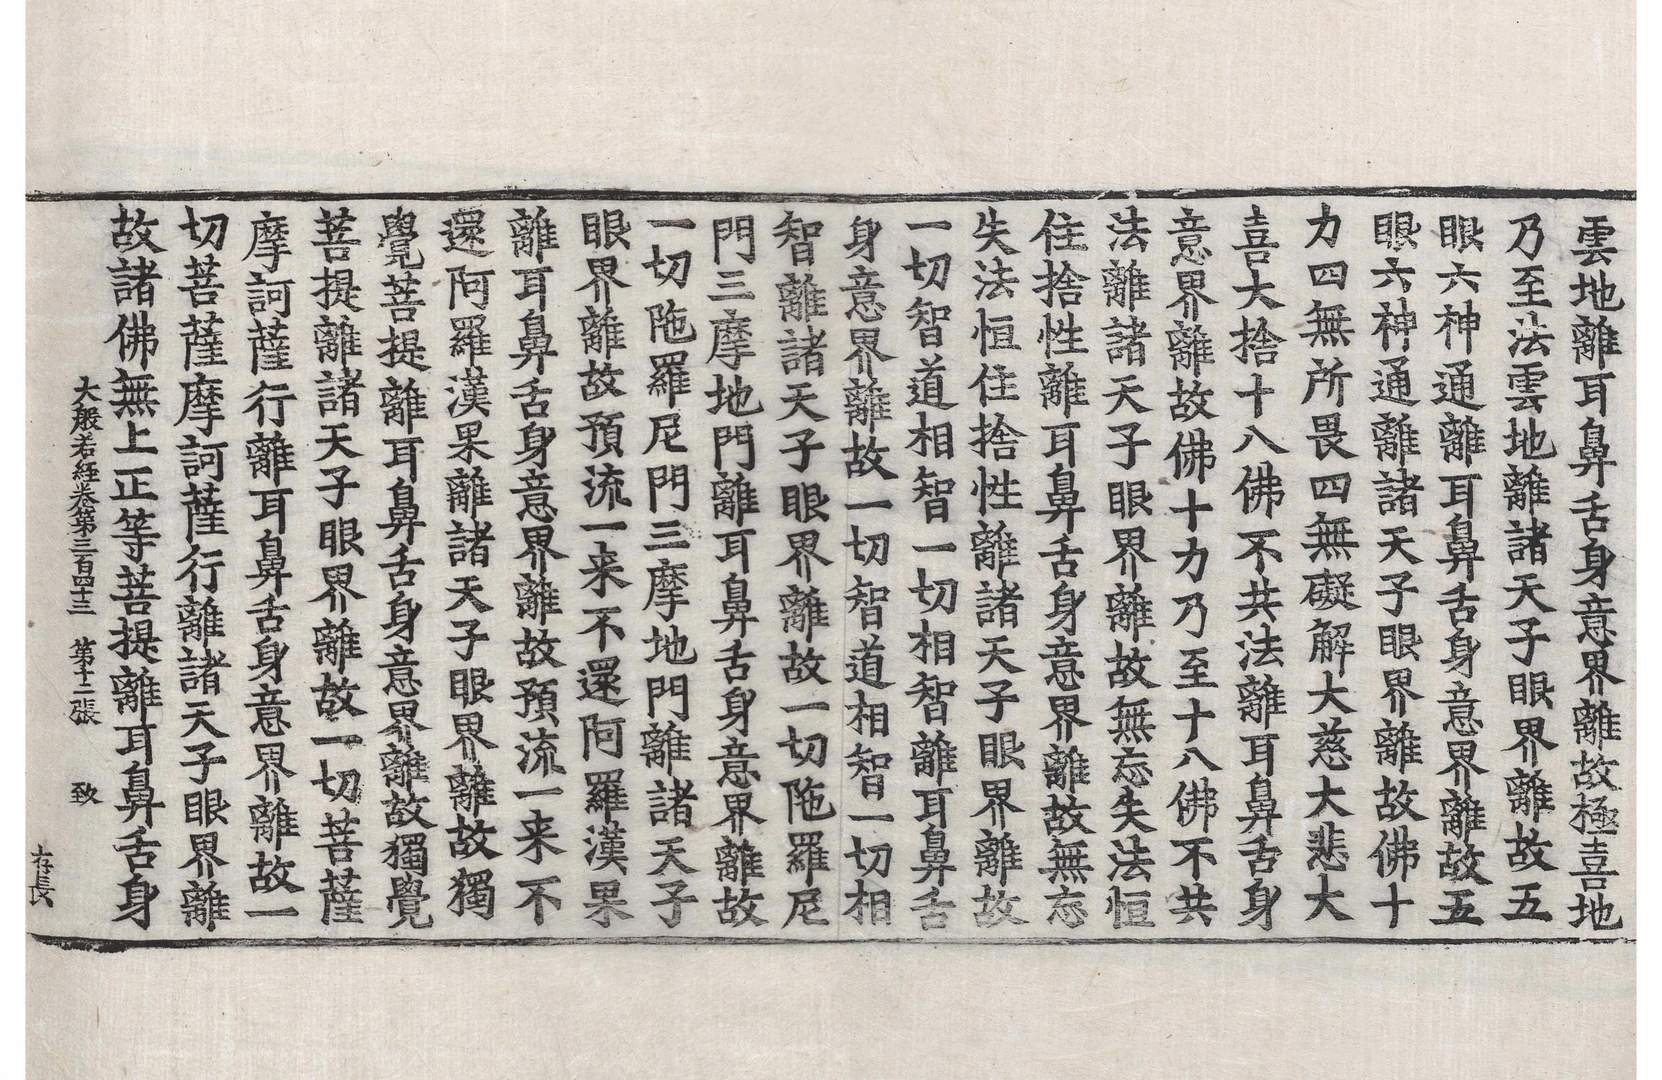 雲地離耳鼻舌身意界離故極喜地
乃至法雲地離諸天子眼界離故五
眼六神通離耳鼻舌身意界離故五
眼六神通離諸天子眼界離故佛十
力四無所畏四無礙解大慈大悲大
喜大捨十八佛不共法離耳鼻舌身
意界離故佛十力乃至十八佛不共
法離諸天子眼界離故無忘失法恒
住捨性離耳鼻舌身意界離故無忘
失法恒住捨性離諸天子眼界離故
一切智道相智一切相智離耳鼻舌
身意界離故一切智道相智一切相
智離諸天子眼界離故一切陁羅尼
門三摩地門離耳鼻舌身意界離故
一切陁羅尼門三摩地門離諸天子
眼界離故預流一来不還阿羅漢果
離耳鼻舌身意界離故預流一来不
還阿羅漢果離諸天子眼界離故獨
覺菩提離耳鼻舌身意界離故獨覺
菩提離諸天子眼界離故一切菩薩
摩訶薩行離耳鼻舌身意界離故一
切菩薩摩訶薩行離諸天子眼界離
故諸佛無上正等菩提離耳鼻舌身
大般若経卷第三百四十三 第十二張 致
存長